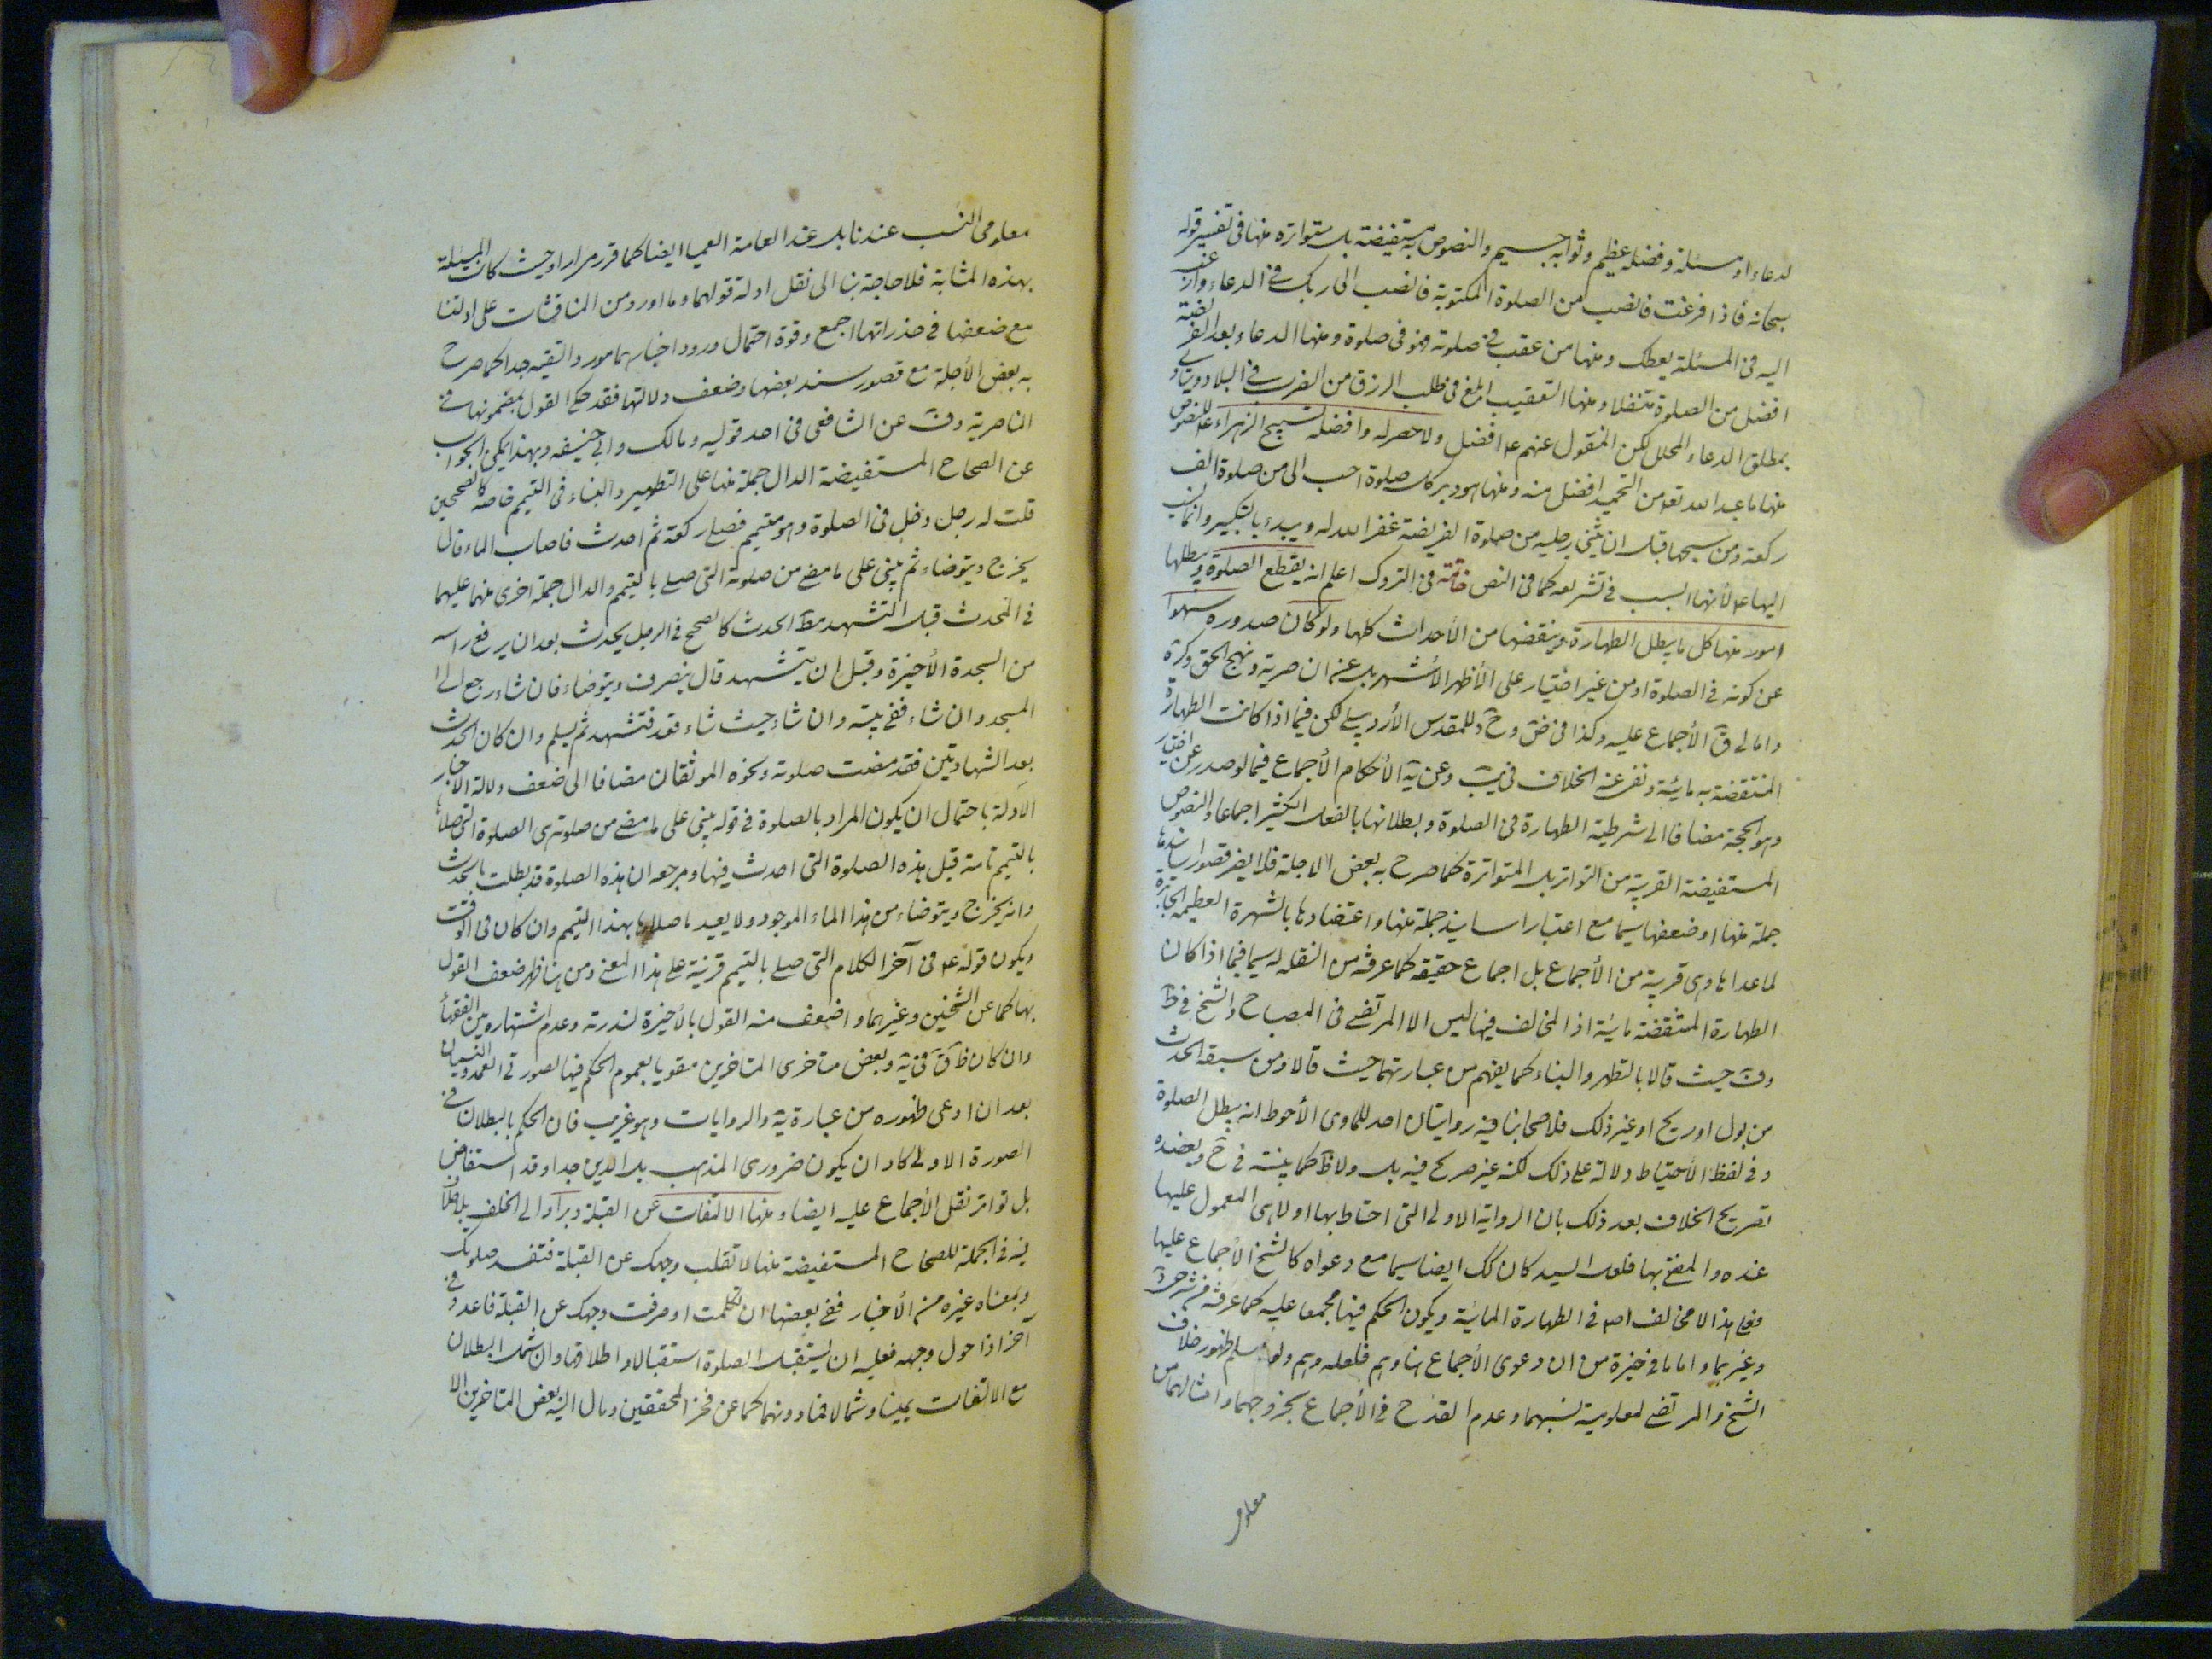 لدعاء او مسئلة وفضله عظيم وثوابه جسيم والنصوص به مستفيضة بل متواترة منها فى تفسير قوله
سبحانه فاذا فرغت فانصب من الصلوة المكتوبة فانصب الى ربك فى الدعاء وارغب
اليه فى المسئلة يعطك ومنها من عقب فى صلوته فهو فى صلوة ومنها الدعاء بعد الفريضة
افضل من الصلوة تنفلا ومنها التعقيب ابلغ فى طلب الرزق من الضرب فى البلاد ويتأدى
بمطلق الدعاء المحلل لكن المنقول عنهم ع افضل ولا حصر له وافضله تسبيح الزهراء ع للنصوص
منها ما عبد الله تعه من التحميد افضل منه ومنها هو دبر كل صلوة احب الى من صلوة الف
ركعة ومن سبحها قبل ان يثنى رجليه من صلوة الفريضة غفر الله له ويبدء بالتكبير وانما نسب
اليها ع لأنها السبب فى تشريعه كما فى النص خاتمة فى التروك اعلم انه يقطع الصلوة ويبطلها
امور منها كل ما يبطل الطهارة وينقضها من الأحداث كلها ولو كان صدوره سهوا
عن كونه فى الصلوة او من غير اختيار على الأظهر الأشهر بل عن الناصرية ونهج الحق وكرة
وامالى ق الأجماع عليه وكذا فى ض وح د للمقدس الأردبيلى لكن فيما اذا كانت الطهارة
المنتقضة به مائية ونفى عنه الخلاف فى يب وعن ية الأحكام الأجماع فيما لو صدر عن اختيار
وهو الحجة مضافا الى شرطية الطهارة فى الصلوة وبطلانها بالفعل الكثير اجماعا والنصوص
المستفيضة القريبة من التواتر بل المتواترة كما صرح به بعض الاجلة فلا يضر قصور اسانيدها
جملة منها او ضعفها سيما مع اعتبار اسانيد جملة منها واعتضادها بالشهرة العظيمة الجابرة
لما عداها وهى قريبة من الأجماع بل اجماع حقيقة كما عرفته من النقله له سيما فيما اذا كان
الطهارة المنتقضة مائية اذ المخالف فيها ليس الا المرتضى فى المصباح والشيخ فى ط
وف حيث قالا بالتطهر والبناء كما يفهم من عبارتهما حيث قالا ومن سبقه الحدث
من بول او ريح او غير ذلك فلاصحابنا فيه روايتان احديهما وهى الأحوط انه يبطل الصلوة
وفى لفظ الأحتياط دلالة على ذلك لكنه غير صريح فيه بل ولا ظ كما بينته فى ح ويعضده
تصريح الخلاف بعد ذلك بان الرواية الاولى التى احتاط بها اولا هى المعمول عليها
عنده والمفتى بها فلعل السيد كان كك ايضا سيما مع دعواه كالشيخ الأجماع عليها
فعلى هذا لا مخالف اصلا فى الطهارة المائية ويكون الحكم فيها مجمعا عليه كما عرفته فى شرح د
وغيرهما واما ما فى خيرة من ان دعوى الأجماع هنا وهم فلعله وهم ولو سلم ظهور خلاف
الشيخ والمرتضى لمعلومية نسبهما وعدم القدح فى الأجماع بخروجهما وامثالهما من
معلومى
معلومى النسب عندنا بل عند العامة العميا ايضا كما قرر مرارا وحيث كان المسئلة
بهذه المثابة فلا حاجة بنا الى نقل ادلة قولهما وما اورد من المناقشات على ادلتنا
مع ضعفها فى حذراتها اجمع وقوة احتمال ورود اخبارهما مورد التقيه جدا كما صرح
به بعض الأجلة مع قصور سند بعضها وضعف دلالتها فقد حكى القول بمضمونها فى
الناصرية وف عن الشافعى فى احد قوليه ومالك وابى حنيفه وبهذا يمكن الجواب
عن الصحاح المستفيضة الدال جملة منها على التطهير والبناء فى التيمم خاصة كالصحيحين
قلت له رجل دخل فى الصلوة وهو متيمم فصلى ركعة ثم احدث فاصاب الماء قال
يخرج ويتوضاء ثم يبنى على ما مضى من صلوته التى صلى بالتيمم والدال جملة اخرى منها عليهما
فى المحدث قبل التشهد مط الحدث كالصحيح فى الرجل يحدث بعد ان يرفع راسه
من السجدة الأخيرة وقبل ان يتشهد قال ينصرف ويتوضاء فان شاء رجع الى
المسجد وان شاء ففى بيته وان شاء حيث شاء قعد فتشهد ثم يسلم وان كان الحدث
بعد الشهادتين فقد مضت صلوته ونحوه الموثقان مضافا الى ضعف دلالة الاخبار
الاولة باحتمال ان يكون المراد بالصلوة فى قوله يبنى على ما مضى من صلوته هى الصلوة التى صلاها
بالتيمم تامة قبل هذه الصلوة التى احدث فيها ومرجعه ان هذه الصلوة قد بطلت بالحدث
وانه يخرج ويتوضاء من هذا الماء الموجود ولا يعيد ما صلاها بهذا التيمم وان كان فى الوقت
ويكون قوله ع فى آخر الكلام التى صلى بالتيمم قرينة على هذا المعنى ومن هنا ظهر ضعف القول
بها كما عن الشيخين وغيرهما واضعف منه القول بالأخيرة لندرته وعدم اشتهاره بين الفقهاء
وان كان ظ ق فى ية وبعض متاخرى المتاخرين مقويا بعموم الحكم فيها لصورتى العمد والنسيان
بعد ان ادعى ظهوره من عبارة ية والروايات وهو غريب فان الحكم بالبطلان فى
الصورة الاولى كاد ان يكون ضرورى المذهب بل الدين جدا وقد استفاض
بل تواتر نقل الأجماع عليه ايضا ومنها الالتفات عن القبلة دبرا والى الخلف بلا خلاف
فيه فى الجملة للصحاح المستفيضة منها لا تقلب وجهك عن القبلة فتفسد صلوتك
وبمعناه غيره من الأخبار ففى بعضها ان تكلمت او صرفت وجهك عن القبلة فاعد وفى
آخر اذا حول وجهه فعليه ان يستقبل الصلوة استقبالا واطلاقها وان شمل البطلان
مع الالتفات يمينا وشمالا فما دونهما كما عن فخر المحققين ومال اليه بعض المتاخرين الا